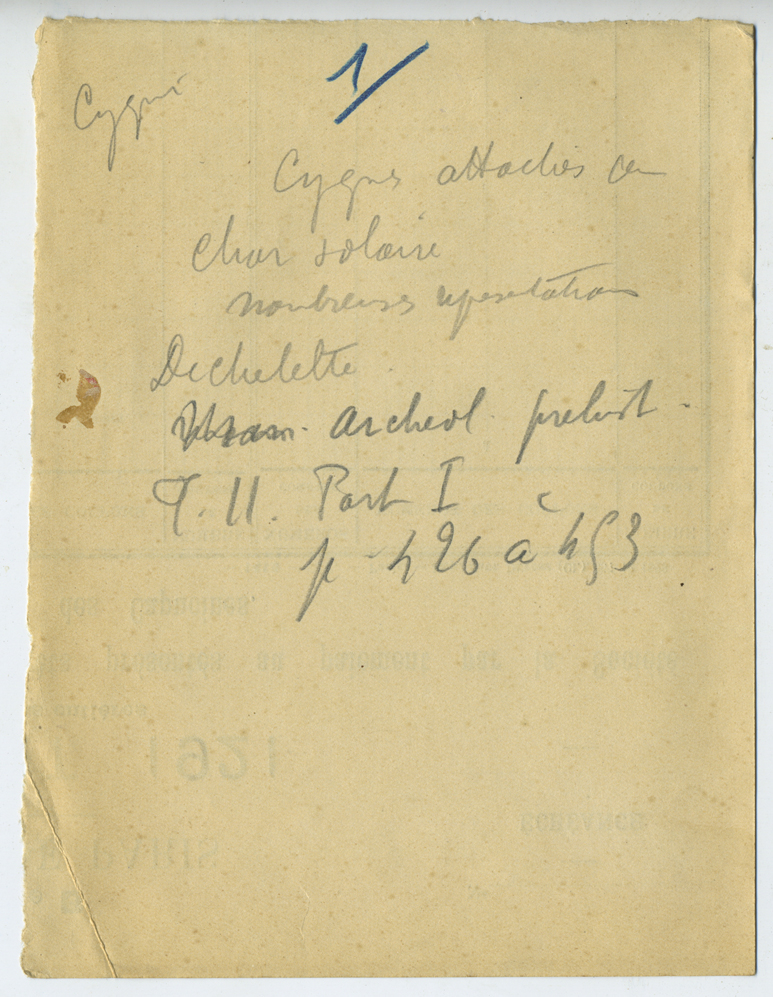 1/
Cygnes attachés au
char solaire
nombreuses representations
Dechelette
Archeol. prehist.
T. II. Part I
p 426 à 453